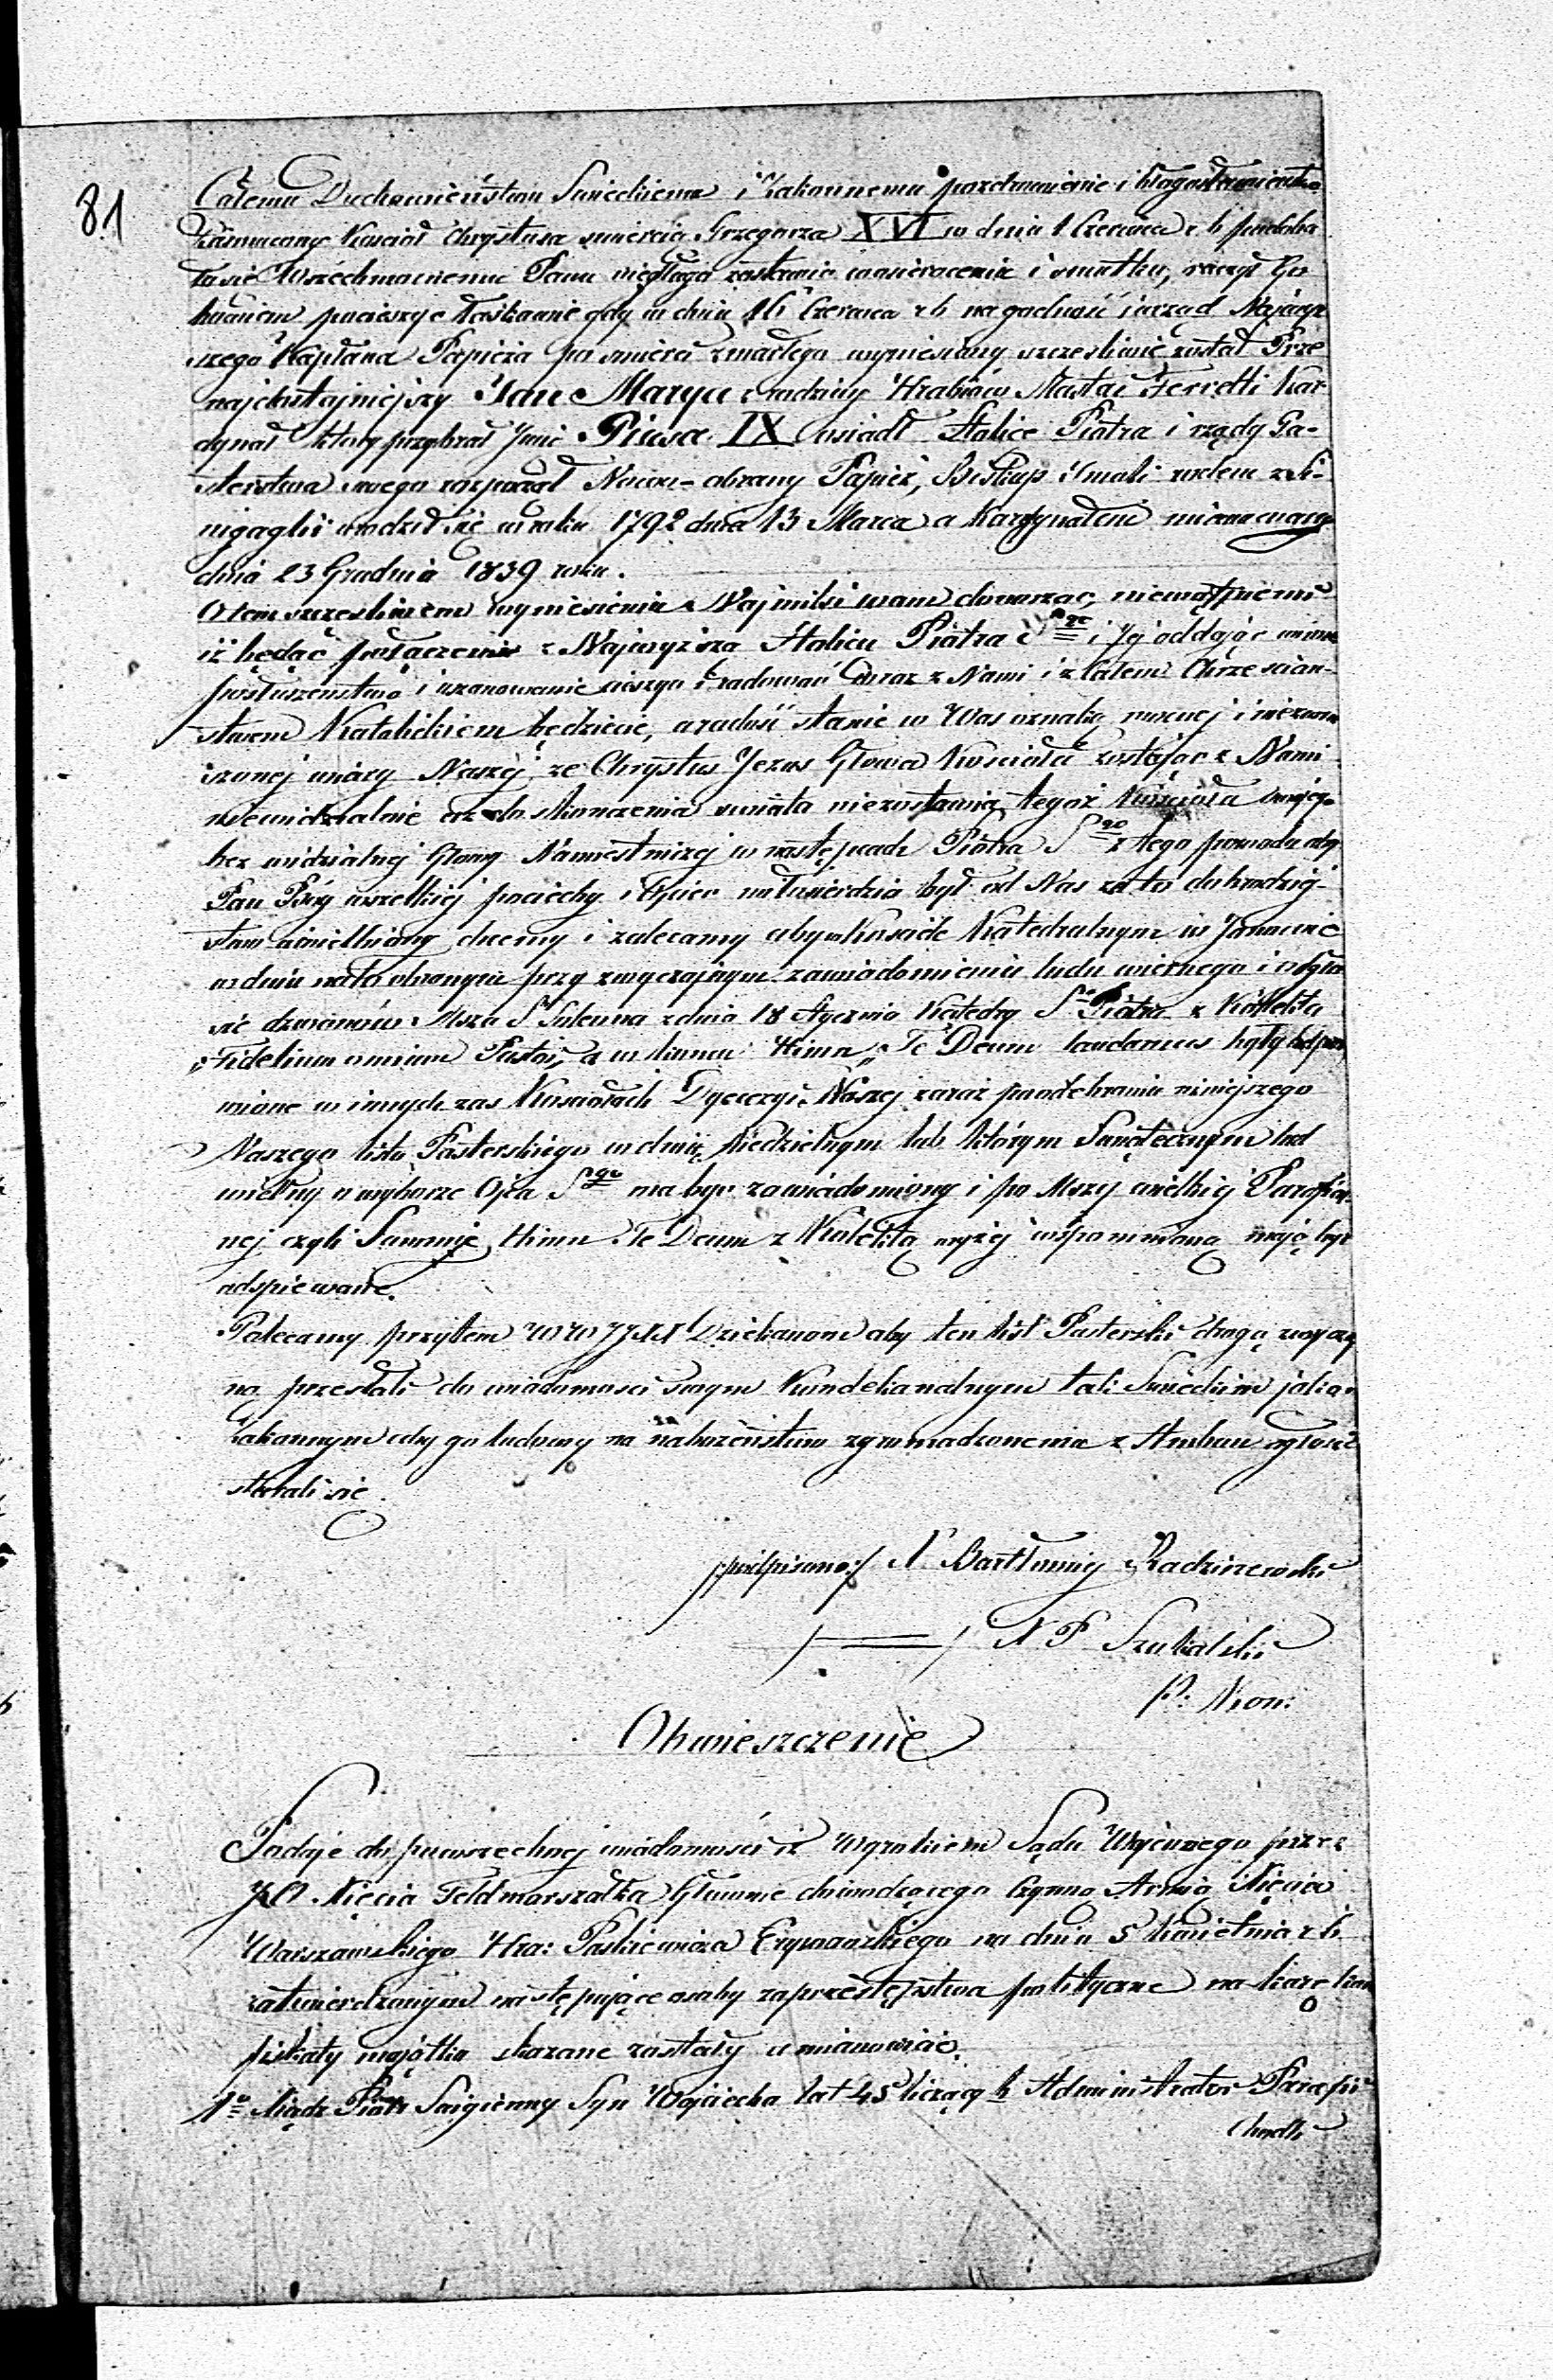 81
Całemu Duchowieństwu Swieckiemu i Zakonnemu pozdrowienie i błogosławieństwo
Zasmucony Kosciół Chrystusa smiercią Grzegorza XVI w dniu 1 Czerwca r b podoba
ło się Wszechmocnemu Panu niedługo zostawić w osieroceniu i smutku, raczył Go
bowiem pocieszyć łaskawie gdy w dniu 16 Czerwca r b na godność i urząd Najwyż
szego Kapłana Papieża po smierci zmarłego wyniesiony szczesliwie został Prze
najdostojniejszy Jan Marya z rodziny Hrabiów Mastai Ferretti Kar
dynał który przybrał Imie Piusa IX osiadł Stolice Piotra i rządy Pa-
sterstwa swego rozpoczął Nowo-obrany Papież, Biskup Imoli rodem z Si-
nigaglii urodził się w roku 1792 dnia 13 Marca a Kardynałem mianowany
dnia 23 Grudnia 1839 roku.
O tem szczesliwem wyniesieniu Najmilsi wam donosząc, niewątpiemy
iż będąc połączeni z Najwyższą Stolicą Piotra S go i Jej oddając winne
posłuszeństwo i uszanowanie cieszyć i radować wraz z Nami i z całem Chrzescian-
stwem Katolickiem będziecie, a radość stanie w Was oznaką mocnej i
szonej wiary Naszej, ze Chrystus Jezus Głowa Kosciała zostając z Nami
niewidzialnie aż do skonczenia swiata niezostawia tegoż Kościoła swojego
bez widzialnej Głowy Namiestniczej w następcach Piotra S go z tego powodu aby
Pan Bóg wszelkiej pociechy i Ojciec miłosierdzia był od Nas za to dobrodziej-
stwo uwielbiony chcemy i zalecamy aby w Kosciele Katedralnym w Janowie
w dniu na to obranym przy zwyczajnym zawiadomieniu ludu wiernego i odgło
sie dzwonów Msza S Solenna z dnia 18 Stycznia Katedry S Piotra z Kollektą
Fidelium omnium Pastor, a w koncu Himn Te Deum laudamus były odpra
wione w innych zas Kosciołach Dyecezyi Naszej zaraz po odebraniu niniejszego
Naszego listu Pasterskiego w dniu Niedzielnym lub którym Swiątecznym lud
wierny o wyborze Ojca S go ma być zawiadomiony i po Mszy wielkiej Parafial
nej czyli Summie, Himn Te Deum z Kolektą wyżej wspomnioną mają być
odspiewane.
Polecamy przytem WW JJXX Dziekanom aby ten list Pasterski drogą zwyczaj
ną przesłali do wiadomosci swym Kondekanalnym tak Swieckim jako i
Zakonnym aby go ludowi na nabożeństwo zgromadzonemu z Ambon ogłosić
starali się
/:podpisano:/ X. Bartłomiej Radziszewski
/ = / X P Szukalski
P: Kon:
Obwieszczenie
Podaje do powszechnej wiadomości iż Wyrokiem Sądu Wojennego przez
JO. Xięcia Feldmarszałka Głównie dowodzącego Czynną Armią Xięcia
Warszawskiego Hra: Paskiewicza Erywańskiego na dniu 5 Kwietnia r b
zatwierdzonym następujące osoby za przestępstwa polityczne na karę kon
fiskaty majątku skazane zostały a mianowicie.
1º Xiądz Piotr Sciegienny Syn Wojciecha lat 45 liczący b Administrator Parafii
Chodli